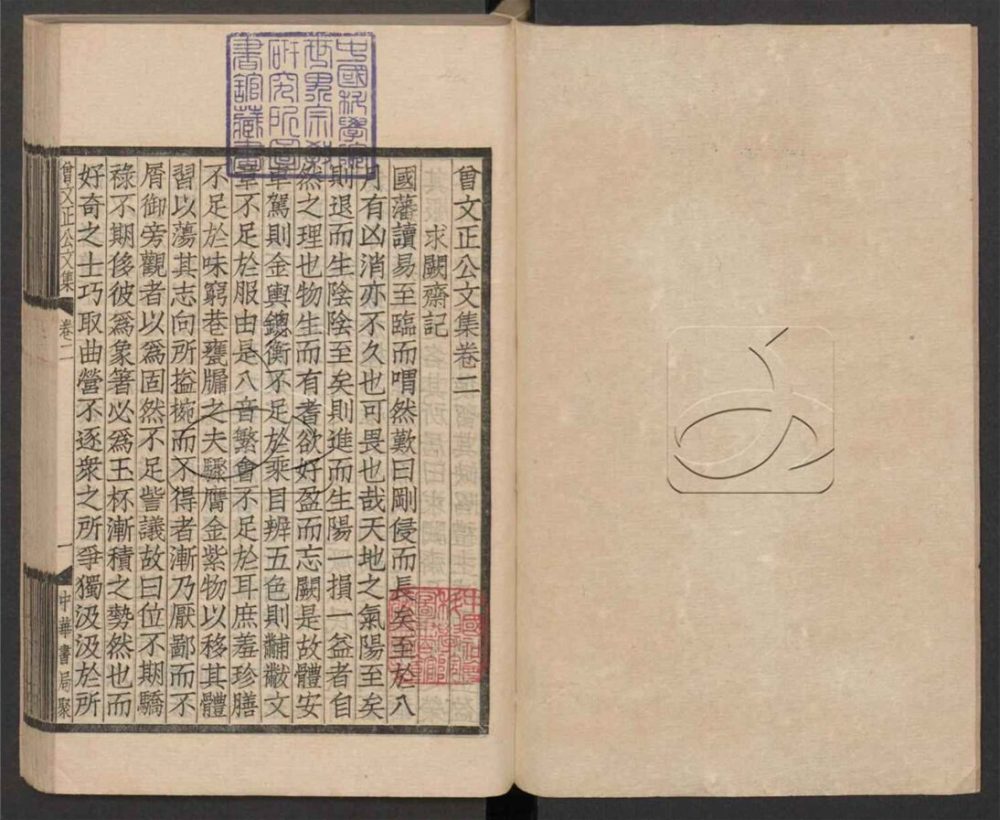 曾文正公文集卷二
求闕齋記
國藩讀易至臨而喟然歎曰剛侵而長矣至於八
月有凶消亦不久也可畏也哉天地之氣陽至矣
則退而生陰陰至矣則進而生陽一損一益者自
然之理也物生而有耆欲好盈而忘闕是故體安
車駕則金輿鏓衡不足於乘目辨五色則黼黻文
章不足於服由是八音繁會不足於耳庶羞珍膳
不足於味窮巷甕牖之夫驟膺金紫物以移其體
習以蕩其志向所搤捥而不得者漸乃厭鄙而不
屑御旁觀者以爲固然不足訾議故曰位不期驕
祿不期侈彼爲象箸必爲玉杯漸積之勢然也而
好奇之士巧取曲營不逐衆之所爭獨汲汲於所
曾文正公文集
卷二
一
中華書局聚
中國科學院
世界宗教
研究所圖
書館藏書